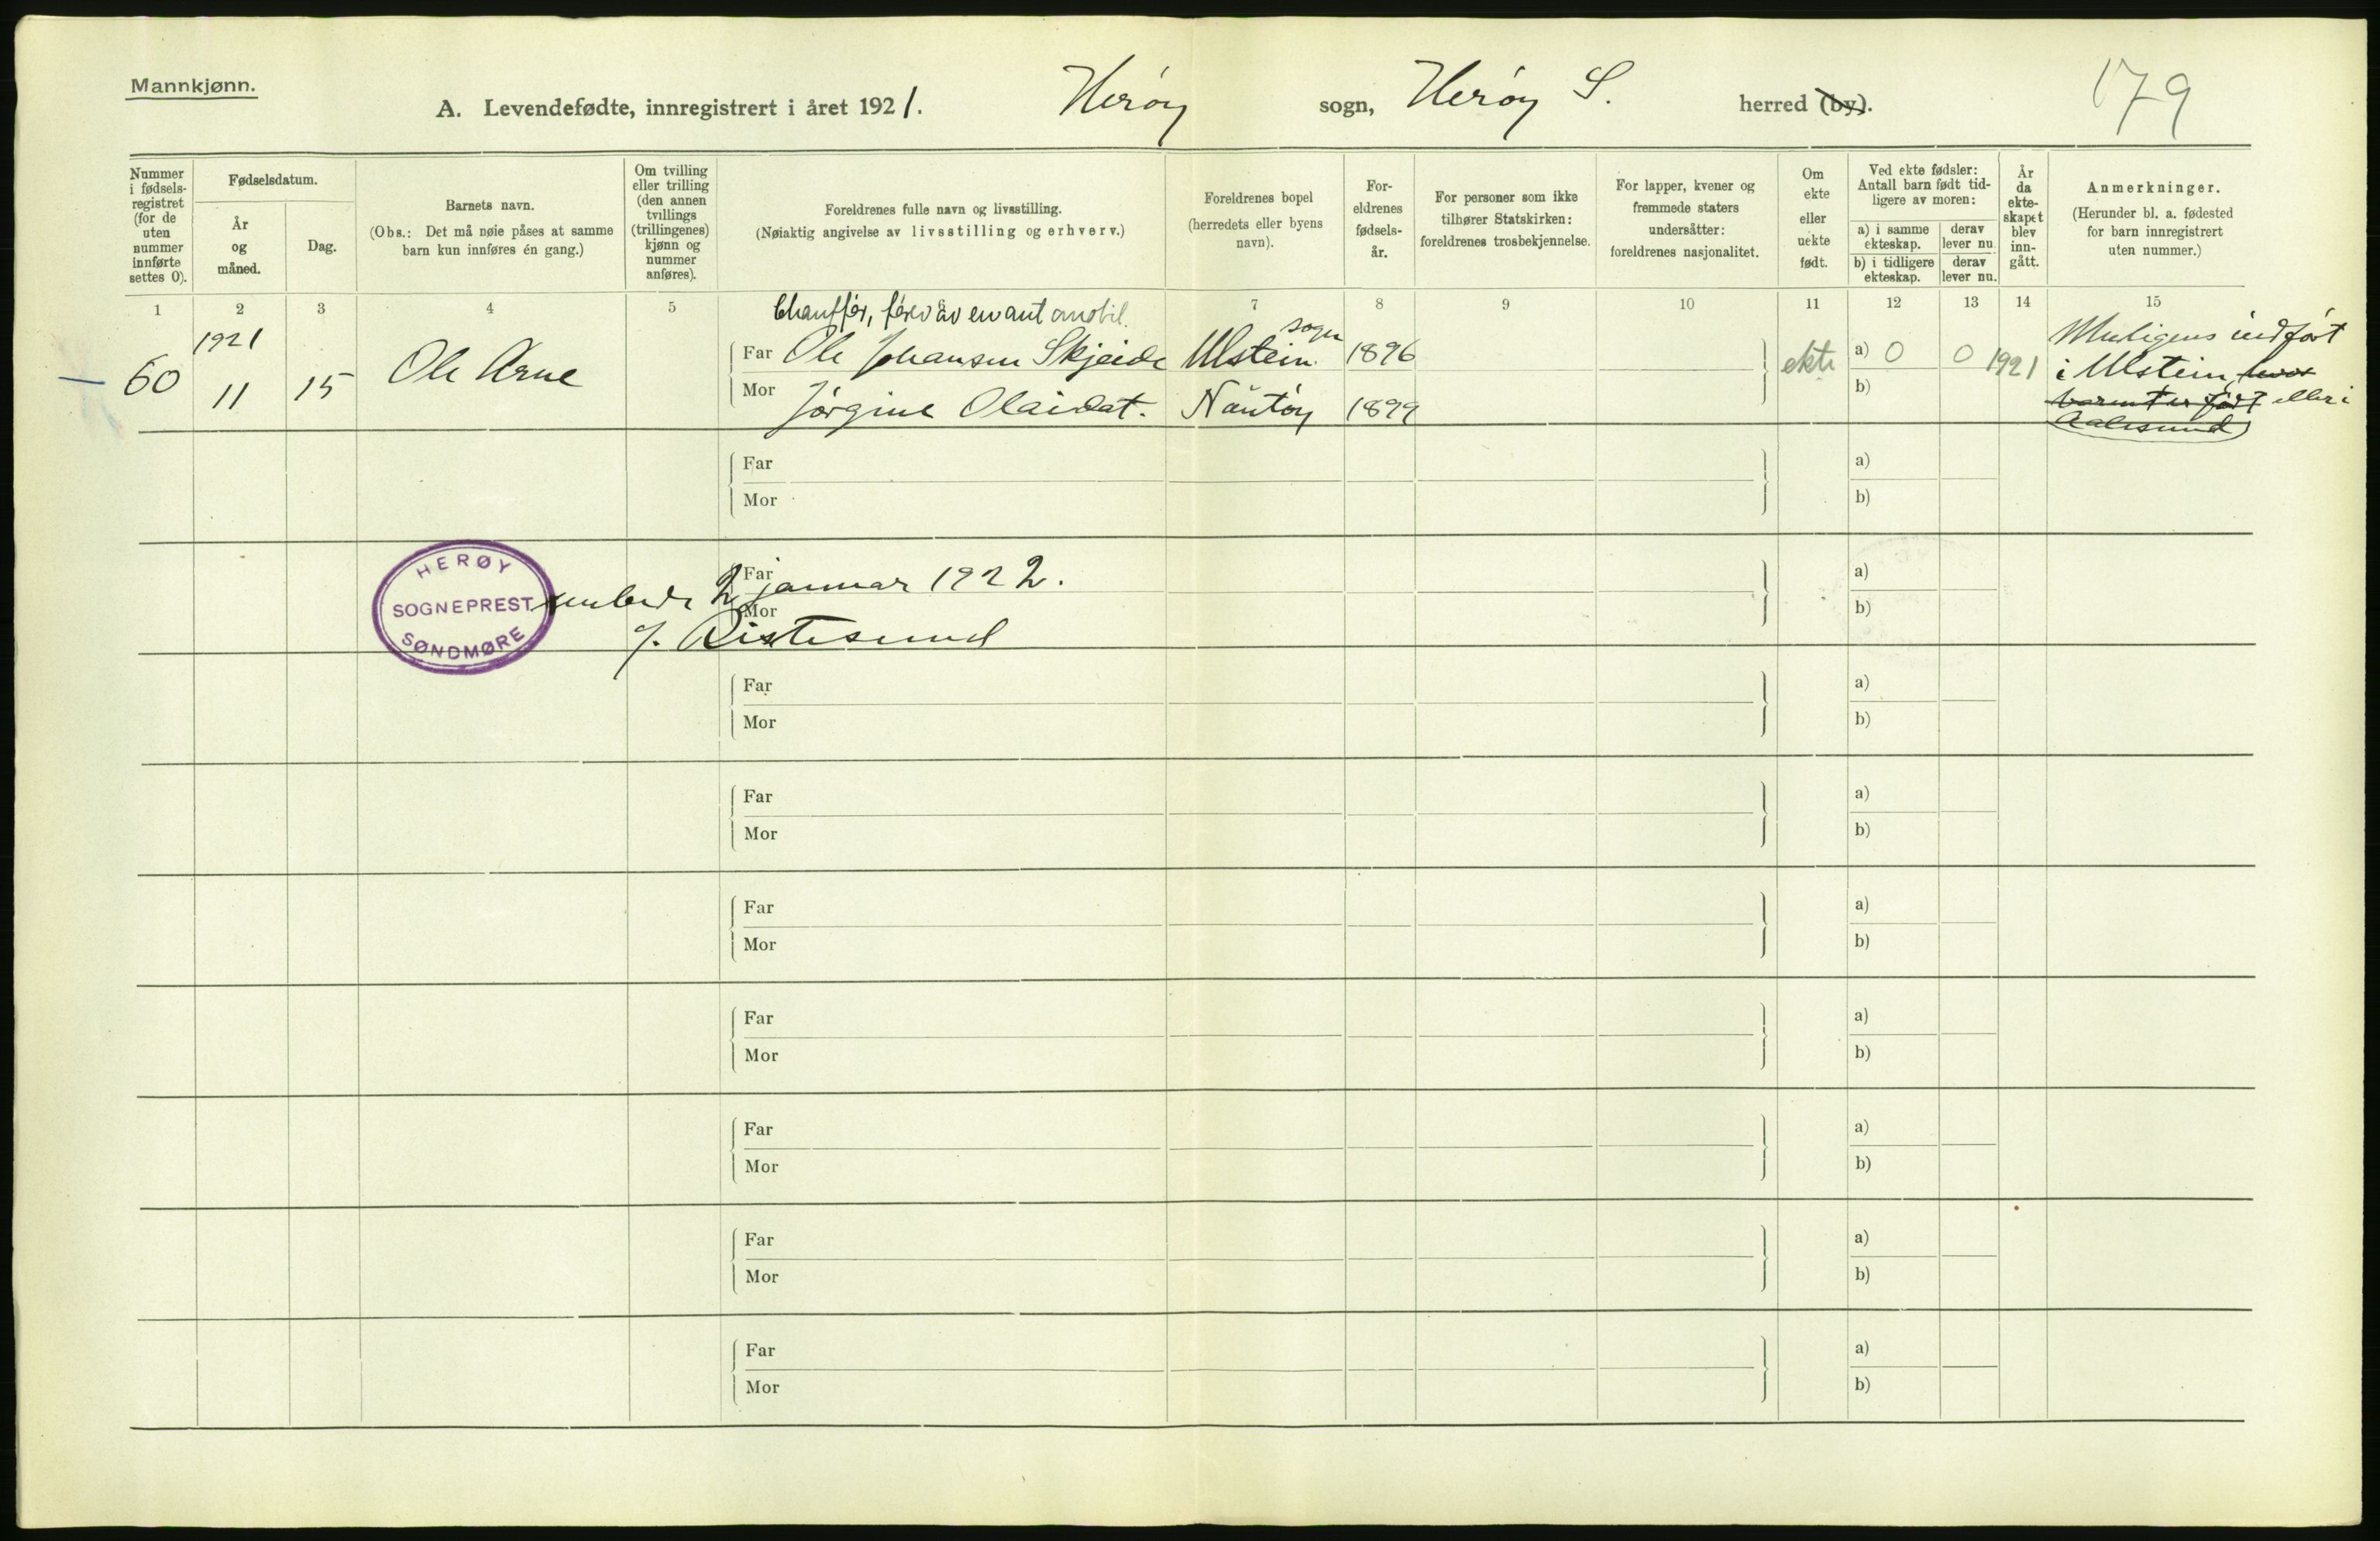 Mannkjønn.
A. Levendefødte, innregistrert i året 1921. Herøy sogn, Herøy S. herred (by). 179
Nummer i fødsels-registret (for de uten nummer innførte settes 0).
Fødselsdatum.
År og måned.
Dag.
Barnets navn.
(Obs.: Det må nøie påses at samme barn kun innføres én gang.)
Om tvilling eller trilling (den annen tvillings (trillingenes) kjønn og nummer anføres).
Foreldrenes fulle navn og livsstilling.
(Nøiaktig angivelse av livsstilling og erhverv.)
Foreldrenes bopel
(herredets eller byens navn).
For-eldrenes fødsels-år.
For personer som ikke tilhører Statskirken: foreldrenes trosbekjennelse.
For lapper, kvener og fremmede staters undersåtter: foreldrenes nasjonalitet.
Om ekte eller uekte født.
Ved ekte fødsler: Antall barn født tid-ligere av moren:
a) i samme ekteskap.
derav lever nu.
b) i tidligere ekteskap.
derav lever nu.
År da ekte-skapet blev inn-gått.
Anmerkninger.
(Herunder bl. a. fødested for barn innregistrert uten nummer.)
1 2 3 4 5 7 8 9 10 11 12 13 14 15
Chauffør, fører av en automobil.
60 1921 11 15 Ole Arne
Far Ole Johansen Skjeide Ulstein sogn 1896
Mor Jørgine Olaidat. Nautøy 1899
ekte a) 0 0 1921
b)
Muligens indført
i Ulstein, hvor
barnet er født eller i
Aalesund
Far a)
Mor b)
HERØY
SOGNEPREST
SØNDMØRE
Far a)
Mor b)
2 januar 1922.
Ristesund
Far a)
Mor b)
Far a)
Mor b)
Far a)
Mor b)
Far a)
Mor b)
Far a)
Mor b)
Far a)
Mor b)
Far a)
Mor b)